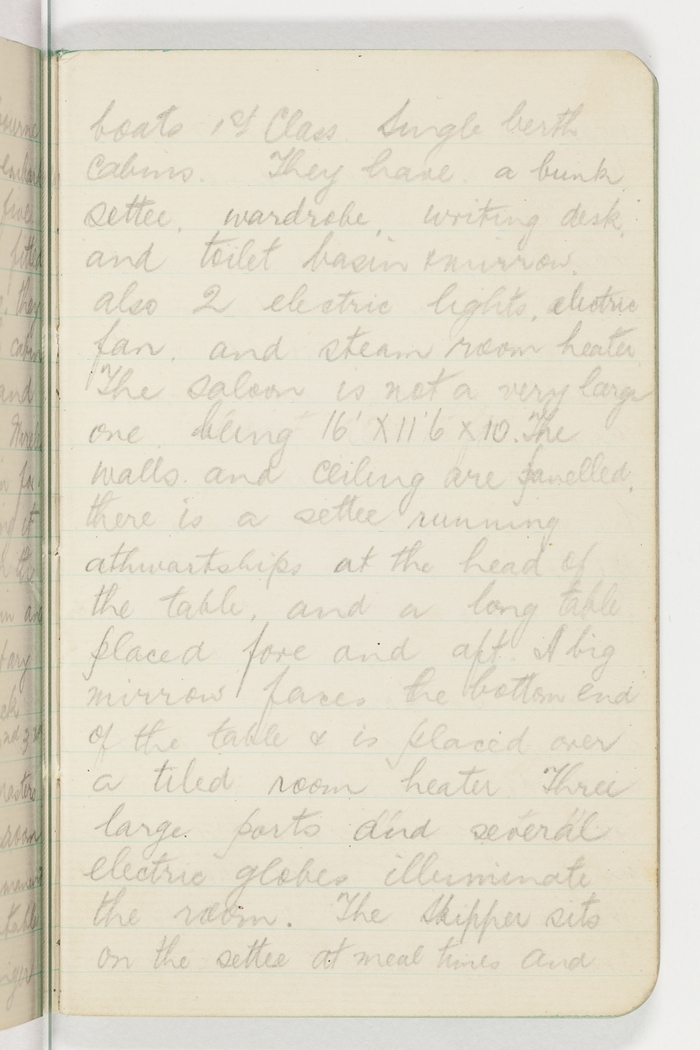 boats 1st Class Single berth
cabins. They have a bunk,
settee, wardrobe, writing desk,
and toilet basin & mirrow.
also 2 electric lights, electric
fan, and steam room heater
The saloon is not a very large
one being 16' X 11'6 X 10. The
walls and ceiling are panelled,
there is a settee running
athwartships at the head of
the table, and a long table
placed fore and aft. A big
mirrow faces the bottom end
of the table & is placed over
a tiled room heater Three
large ports and several
electric globes illuminate
the room. The Skipper sits
on the settee at meal times and